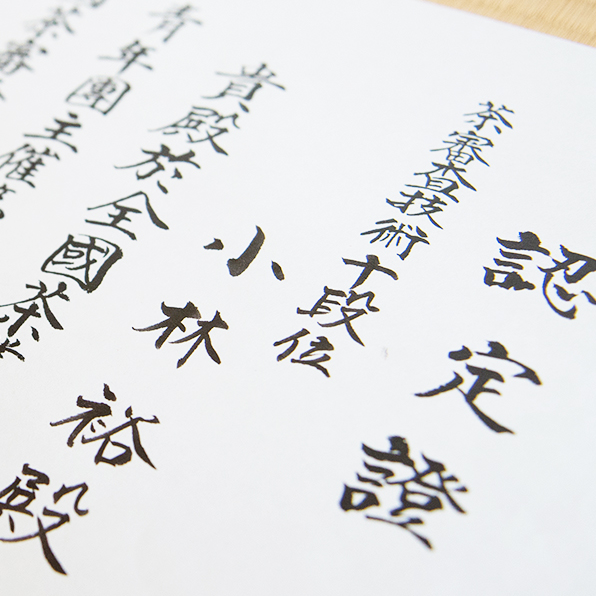 認定證
茶審查技術十段位
小林裕殿
貴殿於全國茶
青年團主催
茶審